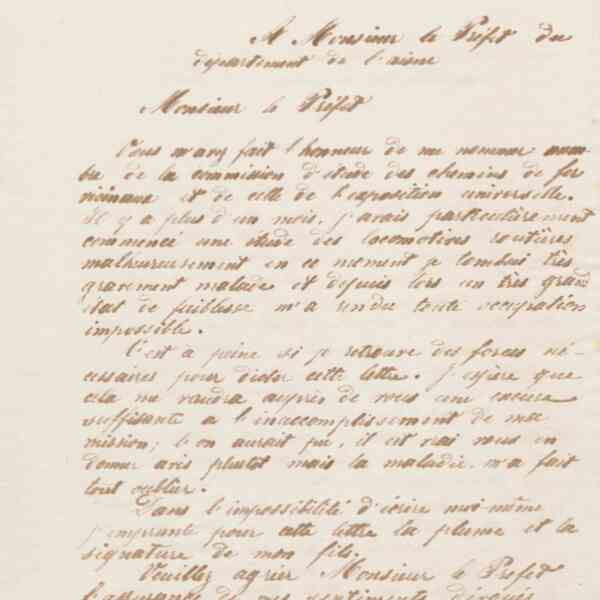 A Monsieur le Préfet du
département de l'aisne
Monsieur le Préfet
Vous m'avez fait l'honneur de me nommer mem
bre de la commission d'étude des chemins de fer
vicinaux et de celle de l'exposition universelle.
Il y a plus d'un mois, j'avais particulièrement
commencé une étude des locomotives routières
malheureusement en ce moment je tombai très
gravement malade et depuis lors un très grand
état de faiblesse m'a rendu toute occupation
impossible.
C'est à peine si je retrouve des forces né-
cessaires pour dicter cette lettre. J'espère que
cela me vaudra auprès de vous une excuse
suffisante a l'inaccomplissement de ma
mission; l'on aurait pu, il est vrai vous en
donner avis plutôt mais la maladie m'a fait
tout oublier.
Dans l'impossibilité d'écrire moi-même
j'emprunte pour cette lettre la plume et la
signature de mon fils.
Veuillez agréer Monsieur le Préfet
l'assurance de mes sentiments dévoués